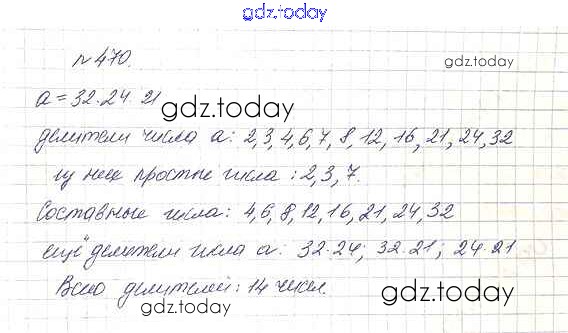 gdz.today
№ 470.
gdz.today
a = 32·24·21
gdz.today
делители числа a: 2,3,4,6,7,8,12,16,21,24,32
из них простые числа: 2,3,7.
Составные числа: 4,6,8,12,16,21,24,32
ещё делители числа a: 32·24; 32·21; 24·21
Всего делителей: 14 чисел.
gdz.today
gdz.today